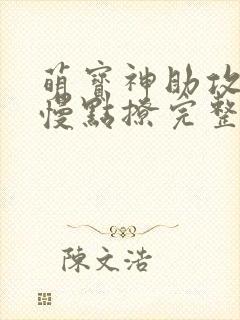 萌寶神助攻
慢點撩完整
陳文浩